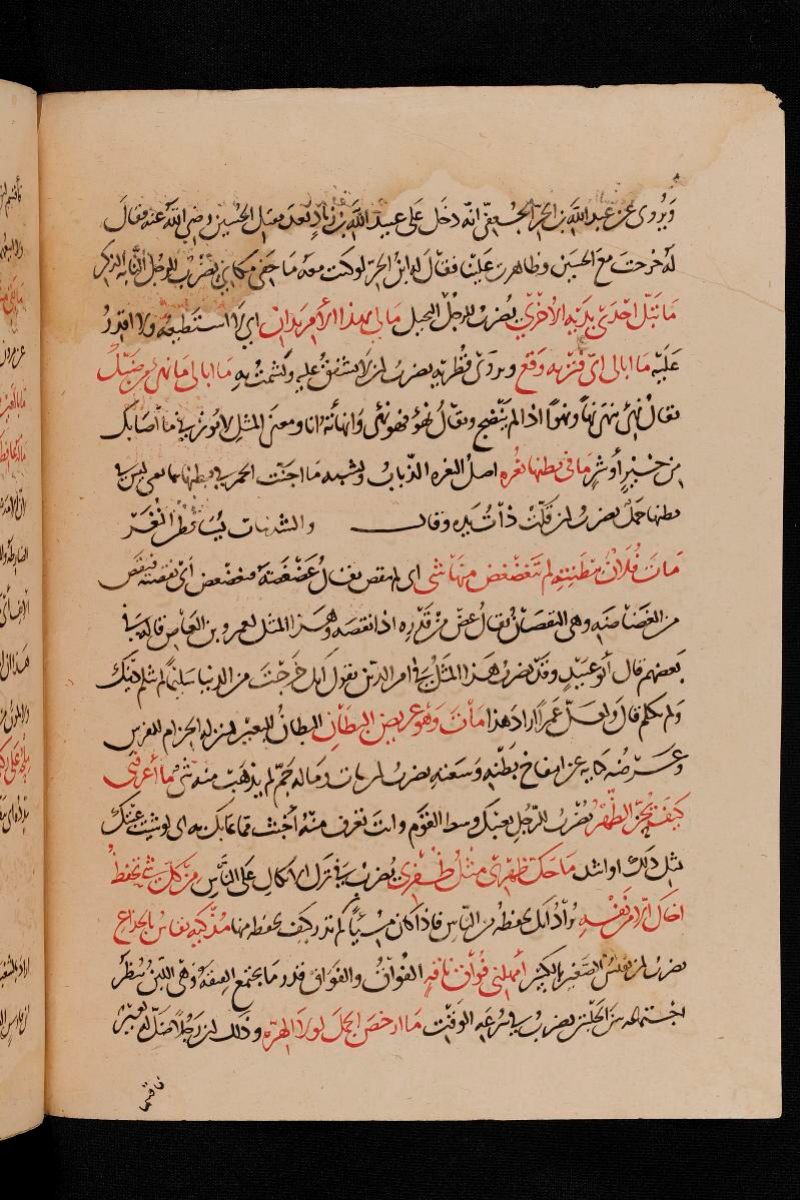 ويروى عن عبد الله بن الحر الجعفي انه دخل على عبيد الله بن زياد بعد مقتل الحسين رضي الله عنه فقال
له خرجت مع الحسين وظاهرت علينا فقال له ابن الحر لو كنت معه ما خفي مكاني يضرب للرجل النابه الذكر
ما تبل احدى يديه الاخرى يضرب للرجل البخيل مالى بهذا الامر يدان اي لا استطيعه ولا اقدر
عليه ما ابالى اي قتريه وقع ويروى قطريه يضرب لمن لا يشفق عليه ويشمت به ما ابالى ما نهئ من ضبك
يقال نهئ ينهئ نهأ ونهوا اذا لم ينضج ويقال نهؤ فهو نهئ وانهأته انا ومعنى المثل لا يؤثر في ما اصابك
من خير أو شر ما في بطنها نعره اصل النعره الذباب ويشبه ما اجنت الحمر في بطنها بها يعى ليس في
بطنها حمل يضرب لمن قلت ذات يده وقال والشدنيات يساقطن النعر
مات فلان ببطنته لم يتغضغض منها شي اى لم ينقص يقال غضغضته فتغضغض أى نقصته فنقص
من الغضاضه وهى النقصان يقال غض من قدره اذا نقصه وهذا المثل لعمرو بن العاص قاله في
بعضهم قال أبو عبيد وقد يضرب هذا المثل في امر الدين يقول انك خرجت من الدنيا سليما لم تثلم دينك
ولم تكلم قال ولعل عمرا اراد هذا مات وهو عريض البطان البطان للبعير بمنزله الحزام للفرس
وعرضه كنايه عن انتفاخ بطنه وسعته يضرب لمن مات وماله جم لم يذهب منه شئ ما أعرفنى
كيف يجز الظهر يضرب للرجل يعيبك وسط القوم وانت تعرف منه أخبث مما عابك به اى لو شئت عبتك
بمثل ذلك او اشد ما حك ظهرى مثل ظفرى يضرب في ترك الاتكال على الناس من كل شئ تحفظ
اخاك الا من نفسه يراد انك تحفظه من الناس فاذا كان مسيئا لم تدر كيف تحفظه منها مذكيه تقاس بالجذاع
يضرب لمن يقيس الصغير بالكبير أمهلنى فواق ناقه الفواق والفواق قدر ما يجتمع الفيقه وهى اللبن ينتظر
اجتماعه بين الحلبتين يضرب في سرعه الوقت ما ارخص الجمل لولا الهرة وذلك ان رجلا ضل له بعير
فاقسم